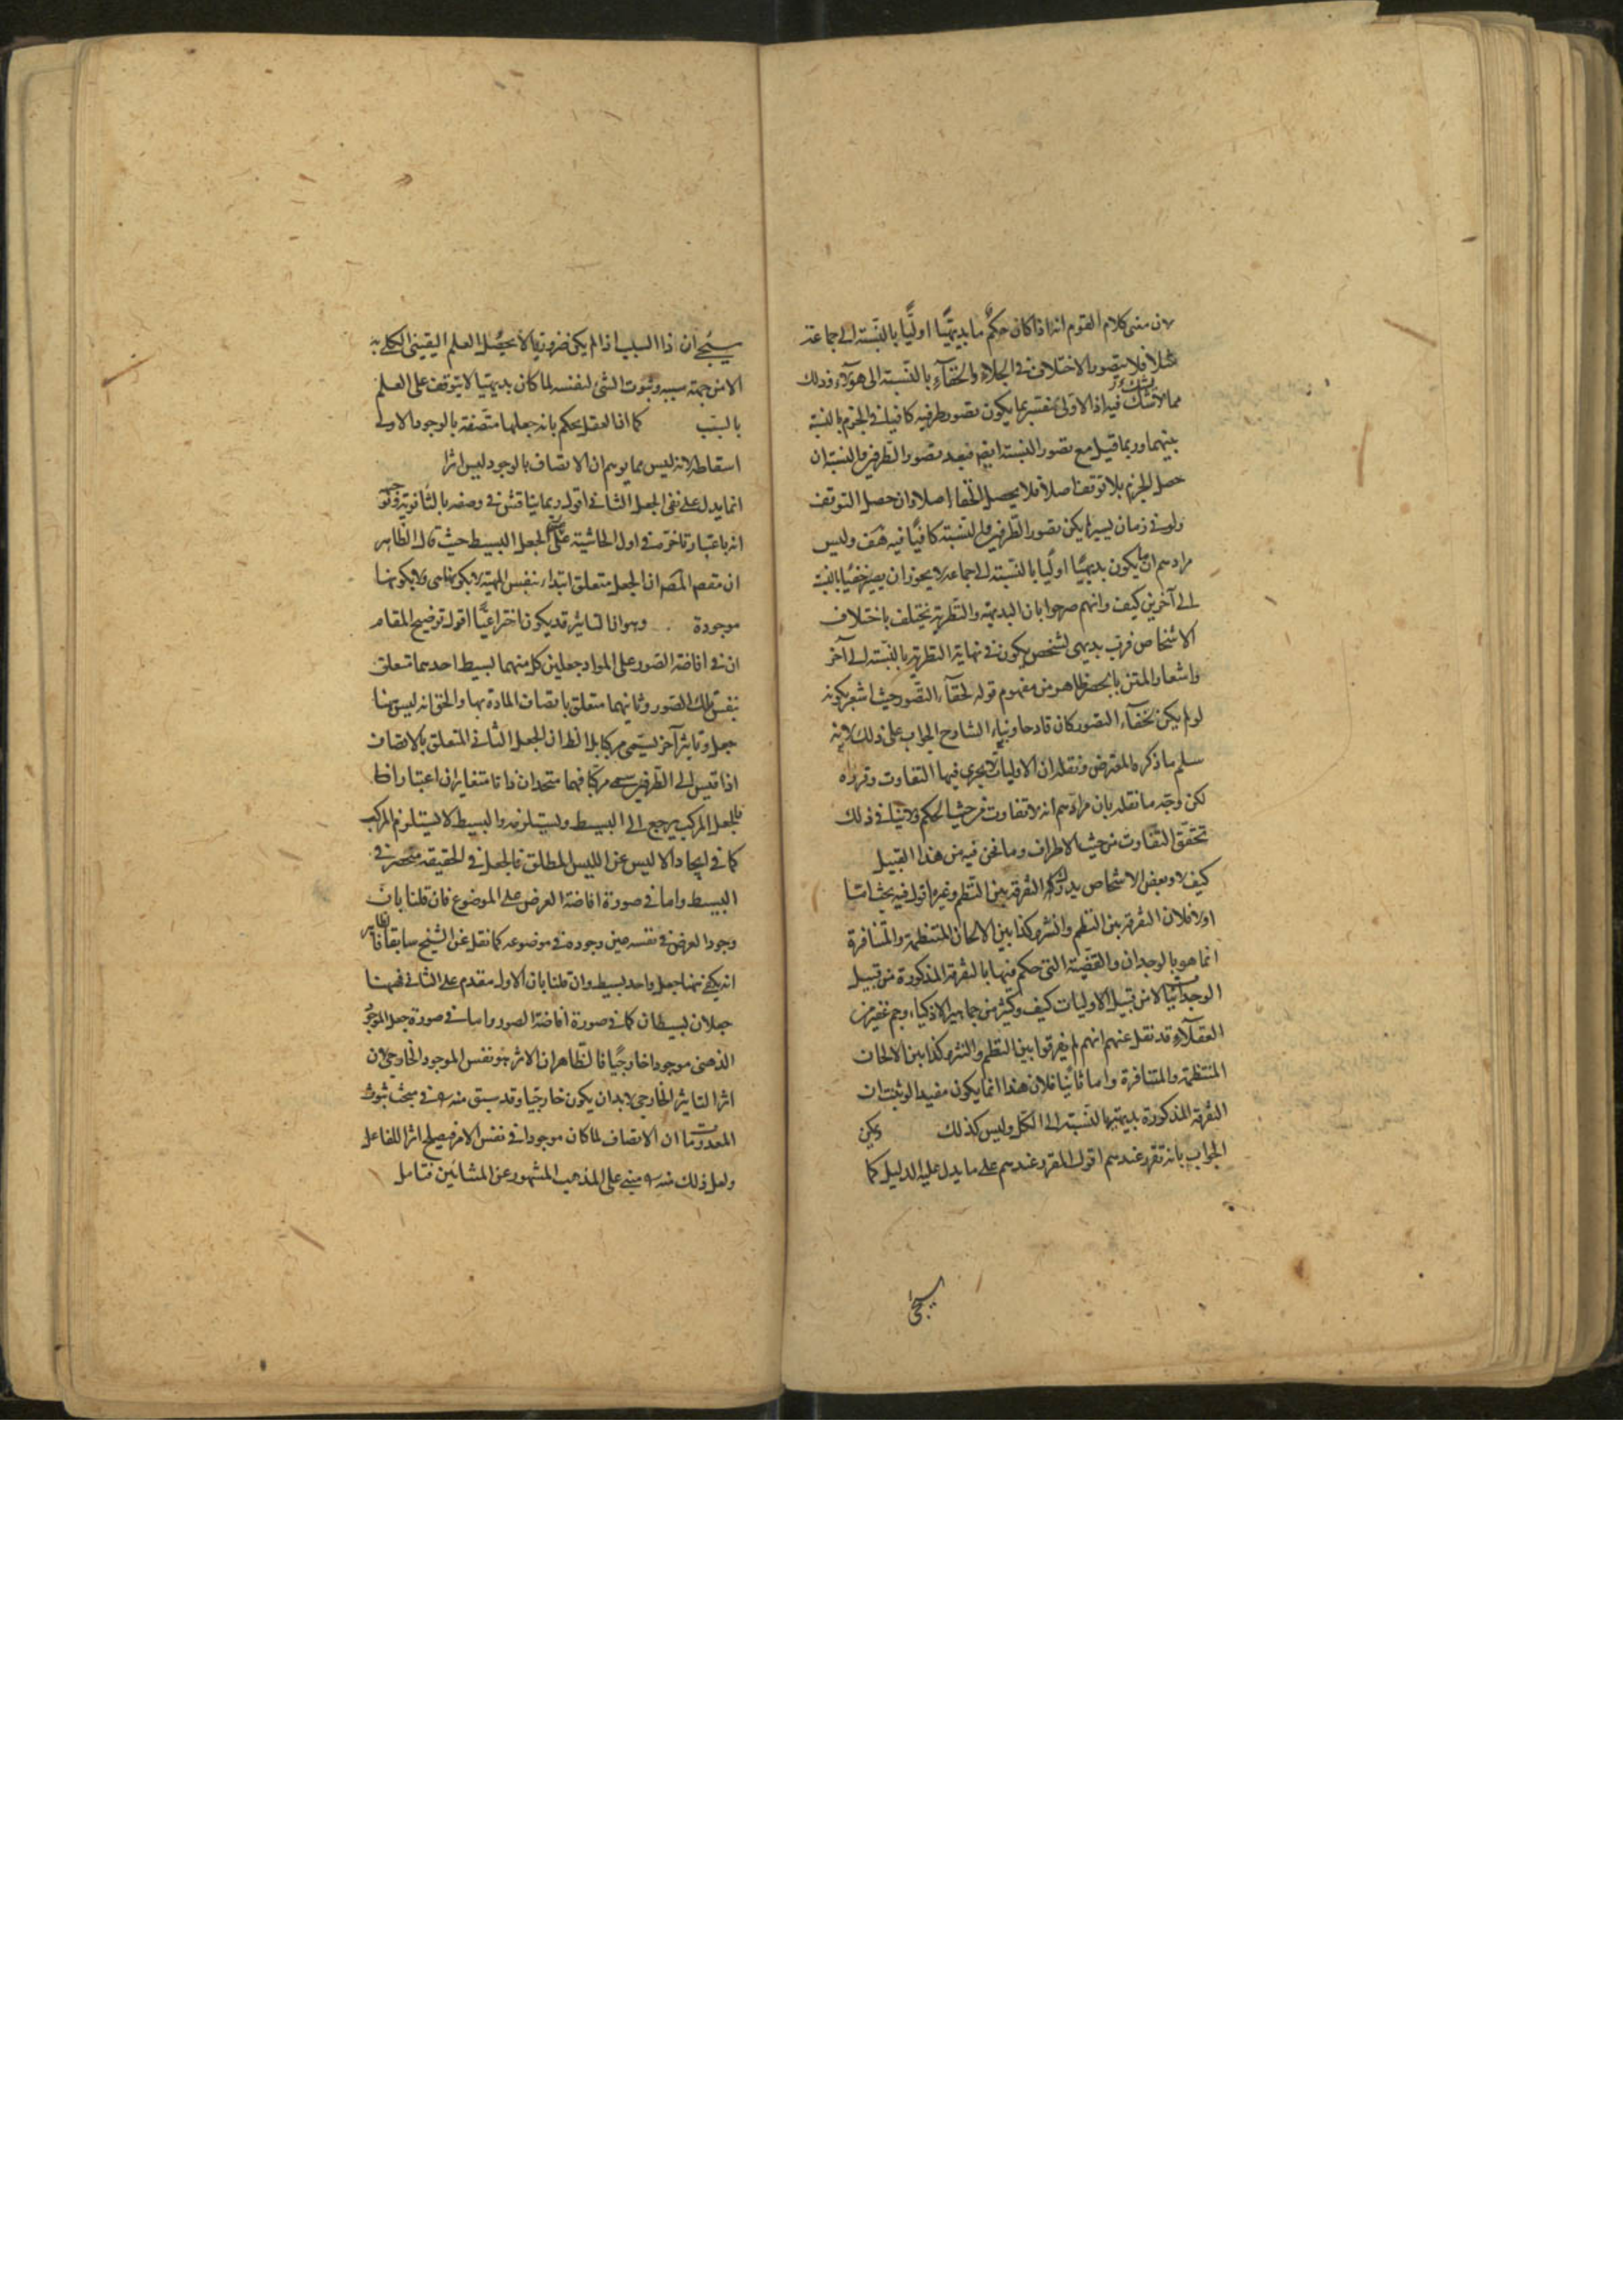 لان معنى كلام القوم انه اذا كان حكم ما بديهيا اوليا بالنسبة الى جماعة
مثلا فلا يتصور الاختلاف فى الجلاء والخفاء بالنسبة الى هؤلاء وذلك
مما لا شك فيه اذ الاولى يفسر بما يكون تصور طرفيه كافيا فى الجزم بالنسبة
بينهما وربما قيل مع تصور النسبة ايضا فبعد تصور الطرفين والنسبة ان
حصل الجزم بلا توقف اصلا فلا يحصل الخفاء اصلا وان حصل التوقف
ولو فى زمان يسير لم يكن تصور الطرفين والنسبة كافيا فيه هف وليس
مرادهم ان ما يكون بديهيا اوليا بالنسبة الى جماعة لا يجوز ان يصير خفيا بالنسبة
الى آخرين كيف وانهم صرحوا بان البديهية والنظرية تختلف باختلاف
الاشخاص فرب بديهى لشخص يكون فى نهاية النظرية بالنسبة الى آخر
واشعار المتن بالحصر ظاهر من مفهوم قوله لخفاء التصور حيث اشعر بكونه
لو لم يكن لخفاء التصور كان قادحا وبناء الشارح الجواب على ذلك لانه
سلم ما ذكره المعترض ونقله ان الاوليات لا يجرى فيها التفاوت وقرره
لكن وجه ما نقله بان مرادهم انه لا تفاوت من حيث الحكم ولا ينافى ذلك
تحقق التفاوت من حيث الاطراف وما نحن فيه من هذا القبيل
كيف لا وبعض الاشخاص يدرك التفرقة بين النظم وغيره اقول فيه بحث اما
اولا فلان التفرقة بين النظم والنثر وكذا بين الالحان المنتظمة والمتنافرة
انما هو بالوجدان والقضية التى حكم فيها بالتفرقة المذكورة من قبيل
الوجدانيات لا من قبيل الاوليات كيف وكثير من جماهير الاذكياء وجم غفير من
العقلاء قد نقل عنهم انهم لم يفرقوا بين النظم والنثر وكذا بين الالحان
المنتظمة والمتنافرة واما ثانيا فلان هذا انما يكون مفيدا لو ثبت ان
التفرقة المذكورة بديهية بالنسبة الى الكل وليس كذلك ويمكن
الجواب بانه تقرر عندهم اقول المقرر عندهم على ما يدل عليه الدليل كما
سيجئ
سيجئ ان ذا السبب اذا لم يكن ضروريا لا يحصل العلم اليقينى الكلى به
الا من جهة سببه وثبوت الشئ لنفسه لما كان بديهيا لا يتوقف على العلم
بالسبب كما ان العقل يحكم بانه جعلها متصفة بالوجود الاولى
اسقاطه لانه ليس مما يوهم ان الاتصاف بالوجود ليس اثرا
انما يدل على نفى الجعل الثانى اقول ربما يناقش فى وصفه بالثانوية
انه باعتبار تاخره فى اول الحاشية عن الجعل البسيط حيث قال الظاهر
ان مقصد المص ان الجعل متعلق ابتداء بنفس المهية لا بكونها هى ولا بكونها
موجودة وهو ان التاثير قد يكون اختراعيا اقول توضيح المقام
ان فى افاضة الصور على المواد جعلين كل منهما بسيط احدهما تتعلق
بنفس تلك الصور وثانيهما متعلق باتصاف المادة بها والحق انه ليس هنا
جعل وتاثير آخر يسمى مركبا بل الظ ان الجعل الثانى المتعلق بالاتصاف
اذا قيس الى الطرفين سمى مركبا فهما متحدان ذاتا متغايران اعتبارا
فالجعل المركب يرجع الى البسيط ويستلزمه والبسيط لا يستلزم المركب
كما فى ايجاد الايس عن الليس المطلق فالجعل فى الحقيقة منحصر فى
البسيط واما فى صورة افاضة العرض على الموضوع فان قلنا بان
وجود العرض فى نفسه عين وجوده فى موضوعه كما نقل عن الشيخ سابقا فالظاهر
انه يكفى ههنا جعل واحد بسيط وان قلنا بان الاول مقدم على الثانى فههنا
جعلان بسيطان كما فى صورة افاضة الصور واما فى صورة جعل الموجود
الذهنى موجودا خارجيا فالظاهر ان الاثر هو نفس الموجود الخارجى لان
اثر التاثير الخارجى لا بد ان يكون خارجيا وقد سبق منه فى مبحث ثبوت
المعدومات ان الاتصاف لما كان موجودا فى نفس الامر فيصلح اثرا للفاعل
ولعل ذلك منه مبنى على المذهب المشهور عن المشائين فتامل